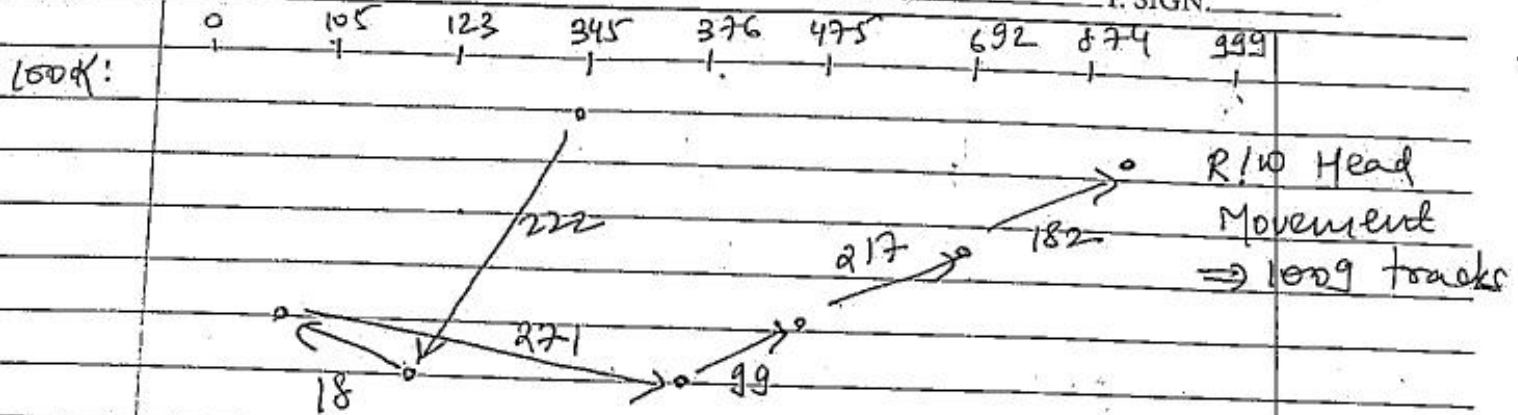 I. SIGN.
0 105 123 345 376 475 692 874 999
LOOK:
R/W Head
222 217 182 Movement
⇒ 1009 tracks
271
18 99